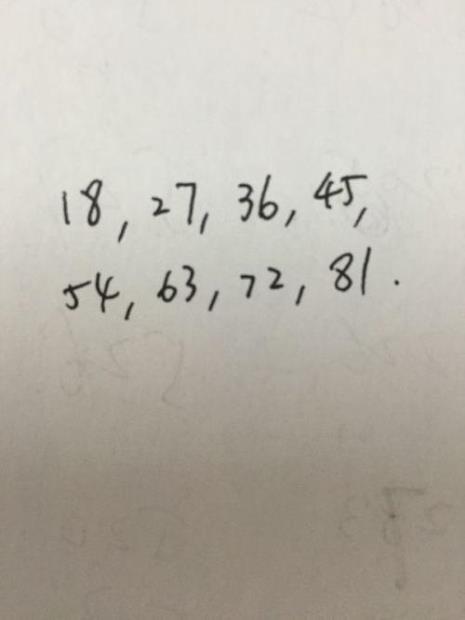 18, 27, 36, 45,
54, 63, 72, 81.